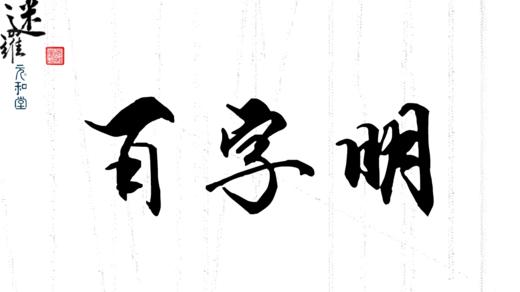 迷羅
元和堂
百字明